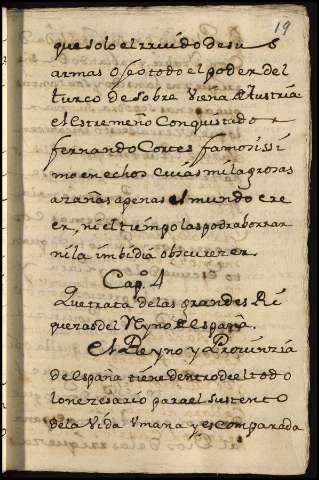 19
que solo el rruido de sus
armas oseo todo el poder del
turco de sobre Viena Austria
el estremeño Conquistador
fernando Cortes famossissi
mo en echos cuias milagrosas
azañas apenas el mundo cre
er, ni el tienpo las podra borrar
ni la imbidia obscurezer.
Capº. 4
Que trata de las grandes Ri
quezas del Reyno de España.
El Reyno y Prouinzia
de España tiene dentro de el todo
lo nezesario para el sustento
de la Vida Vmana y es comparada